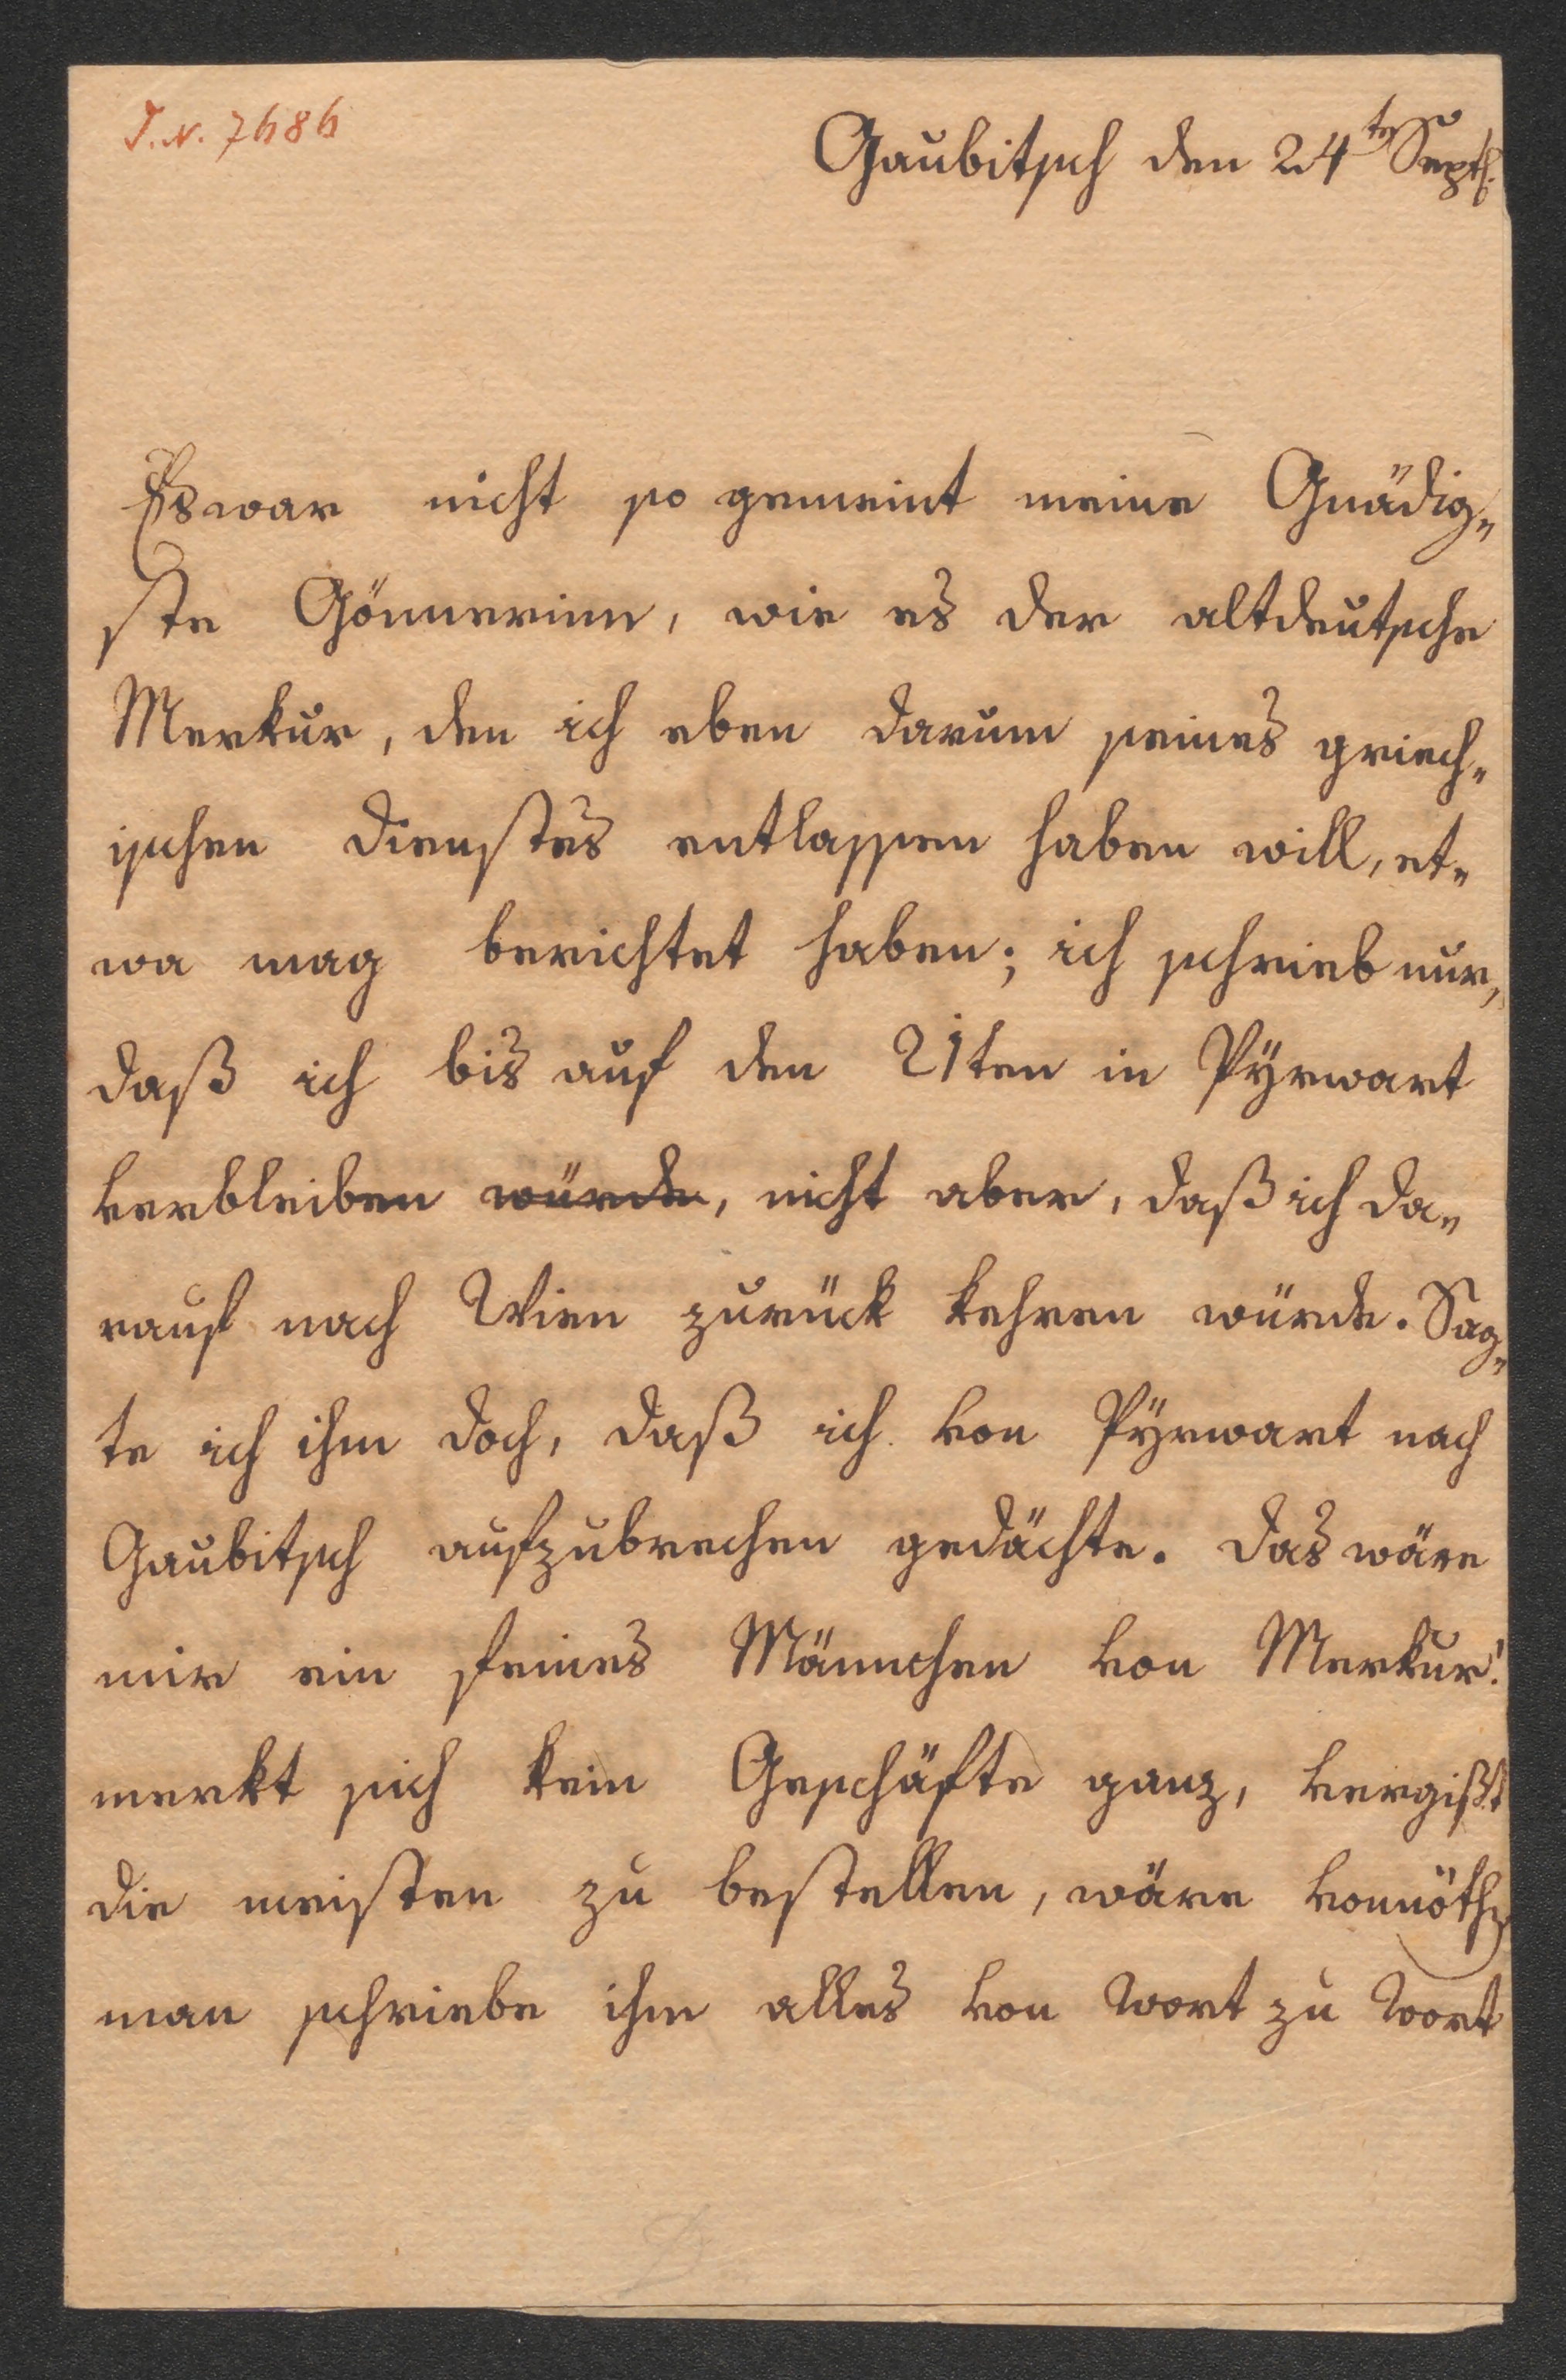 I.N. 7686
Gaubitsch den 24ten Septb.
Es war nicht so gemeint meine Gnädig„
ste Gönnerinn, wie es der altdeutsche
Merkur, den ich eben darum seines griech„
ischen Dienstes entlassen haben will, et„
wa mag berichtet haben; ich schrieb nur,
daß ich bis auf den 21ten in Pÿrwart
verbleiben würde, nicht aber, daß ich da„
rauf nach Wien zurück kehren würde. Sag„
te ich ihm doch, daß ich von Pÿrwart nach
Gaubitsch aufzubrechen gedächte. Das wäre
mir ein feines Männchen von Merkur!
merkt sich kein Geschäfte ganz, vergißt
die meisten zu bestellen, wäre vonnöthen
man schriebe ihm alles von Wort zu Wort